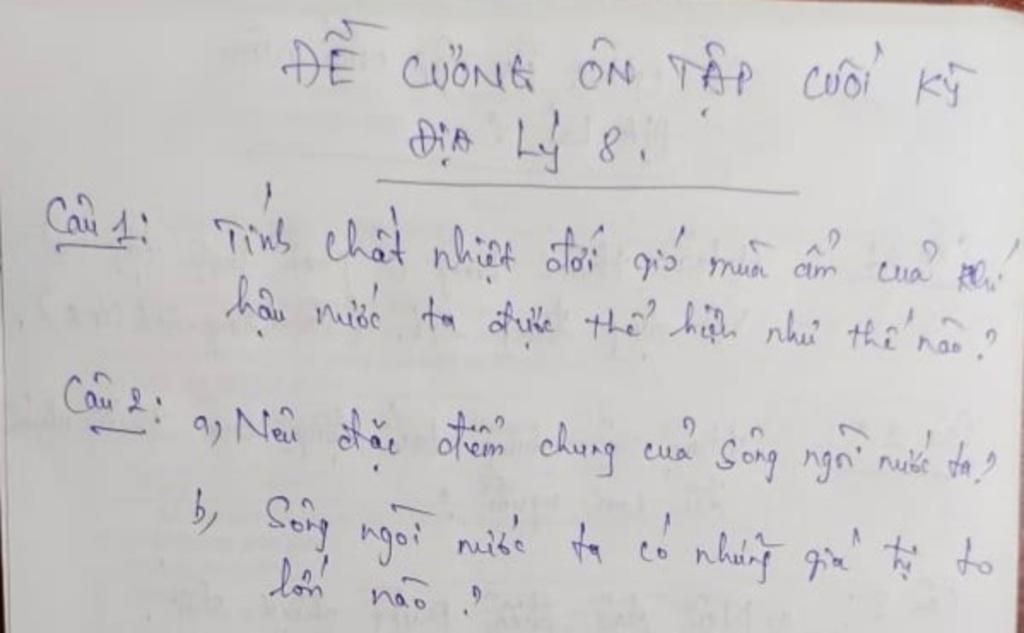 ĐỀ CƯƠNG ÔN TẬP CUỐI KỲ
ĐỊA LÝ 8.
Câu 1: Tính chất nhiệt đới gió mùa ẩm của khí
hậu nước ta được thể hiện như thế nào?
Câu 2: a, Nêu đặc điểm chung của sông ngòi nước ta?
b, Sông ngòi nước ta có những giá trị to
lớn nào?